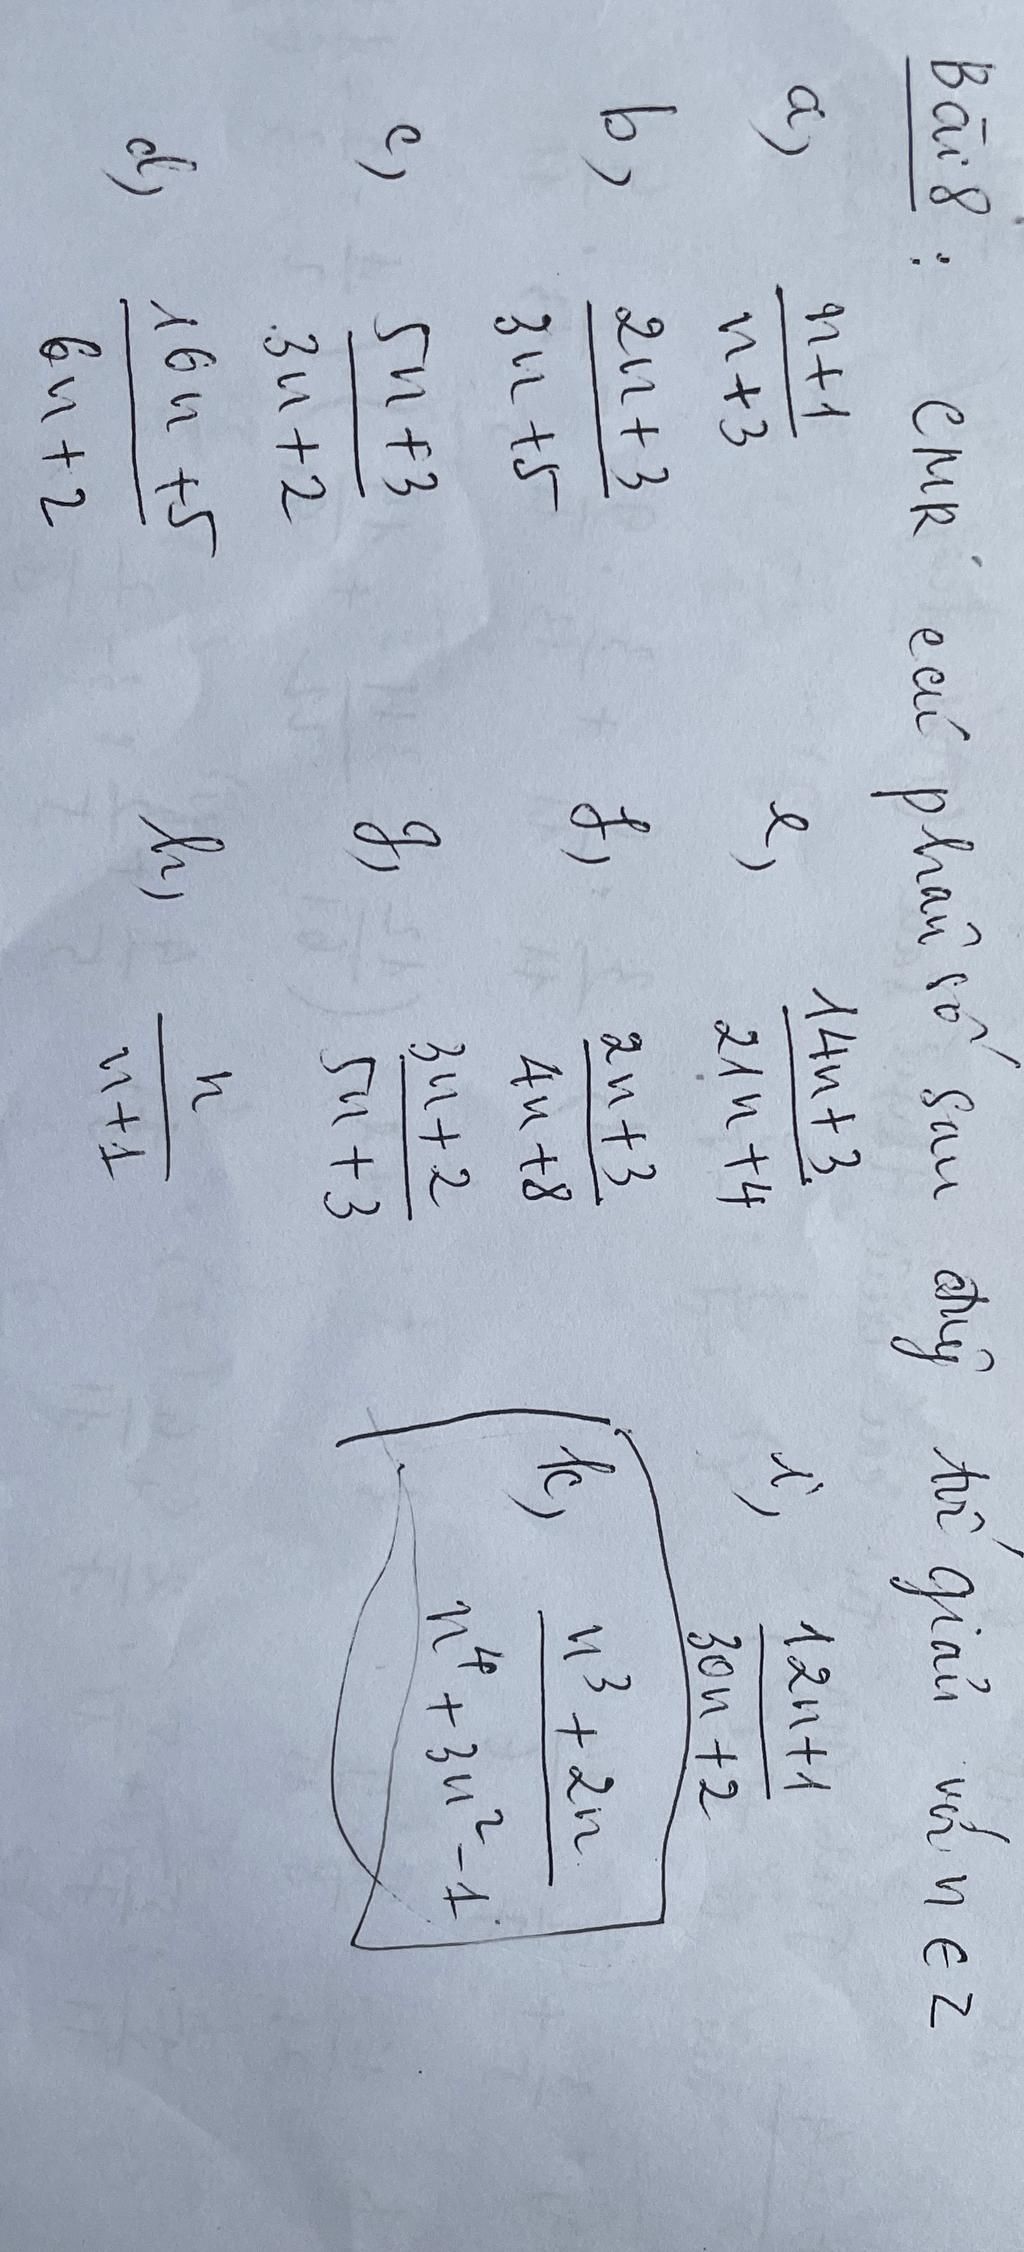 Bài 8 : CMR các phân số sau đây tối giản với n ∈ Z
a, n+1 / n+3
e, 14n+3 / 21n+4
i, 12n+1 / 30n+2
b, 2n+3 / 3n+5
f, 2n+3 / 4n+8
k, n³+2n / n⁴+3n²-1
c, 5n+3 / 3n+2
g, 3n+2 / 5n+3
d, 16n+5 / 6n+2
h, n / n+1